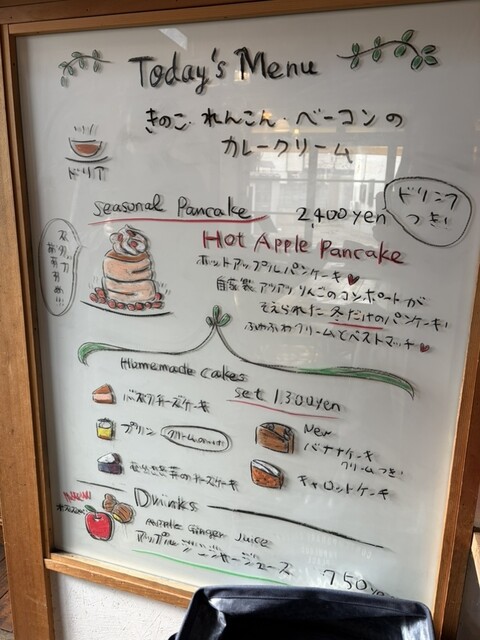 Today's Menu
きのこ・れんこん・ベーコンの
カレークリーム
ドリア
seasonal Pancake 2,400yen
ドリンク
つき!
Hot Apple Pancake
ホットアップルパンケーキ
自家製アツアツりんごのコンポートが
そえられた冬だけのパンケーキ!
ふわふわクリームとベストマッチ
Homemade Cakes
set 1,300yen
チーズケーキ
プリン
New
バナナケーキ
クリームつき
チーズケーキ
キャロットケーキ
Drinks
Apple Ginger Juice
アップルジンジャージュース
750yen